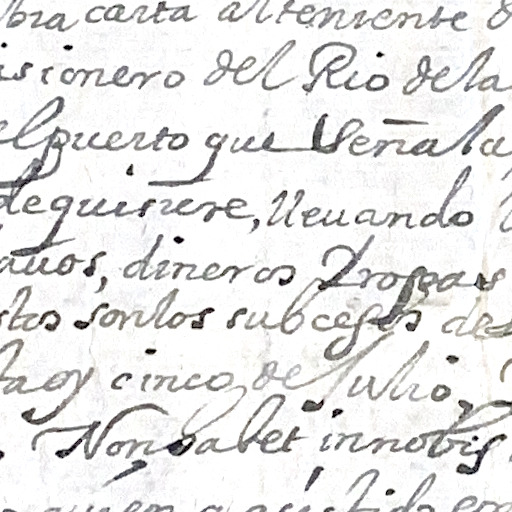 bia carta al teniente d
isionero del Rio dela
el puerto que señala
de quisiere, lleuando
auos, dineros
stos son los subcesos de
ta oy cinco de Julio,
Non habet in nobis